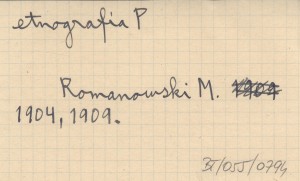 etnografia P
Romanowski M.
1904, 1909.
BI/055/0794